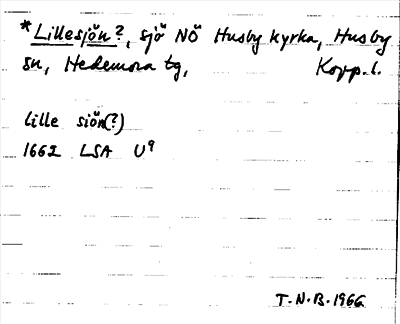 *Lillesjön?, sjö NÖ Husby kyrka, Husby
sn, Hedemora tg, Kopp.l.
Lille siön(?)
1662 LSA U9
T.N.B. 1966